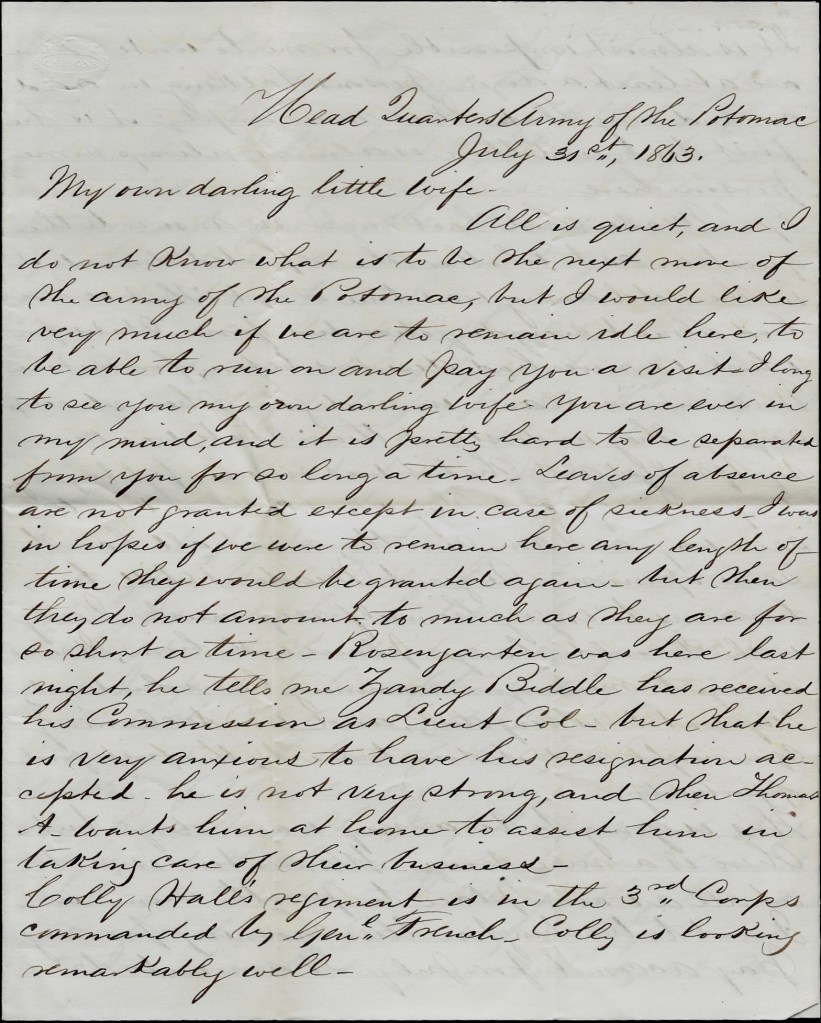 Head Quarters Army of the Potomac
July 31st, 1863.
My own darling little wife-
All is quiet, and I
do not know what is to be the next move of
the army of the Potomac, but I would like
very much if we are to remain idle here, to
be able to run on and pay you a visit- I long
to see you my own darling wife- you are ever in
my mind, and it is pretty hard to be separated
from you for so long a time- Leaves of absence
are not granted except in case of sickness- I was
in hopes if we were to remain here any length of
time they would be granted again- but then
they do not amount to much as they are for
so short a time- Rosengarten was here last
night, he tells me Zandy Biddle has received
his Commission as Lieut Col- but that he
is very anxious to have his resignation ac-
cepted- he is not very strong, and then Thomas
A- wants him at home to assist him in
taking care of their business-
Colly Hall's regiment is in the 3rd Corps
commanded by Genl French- Colly is looking
remarkably well-